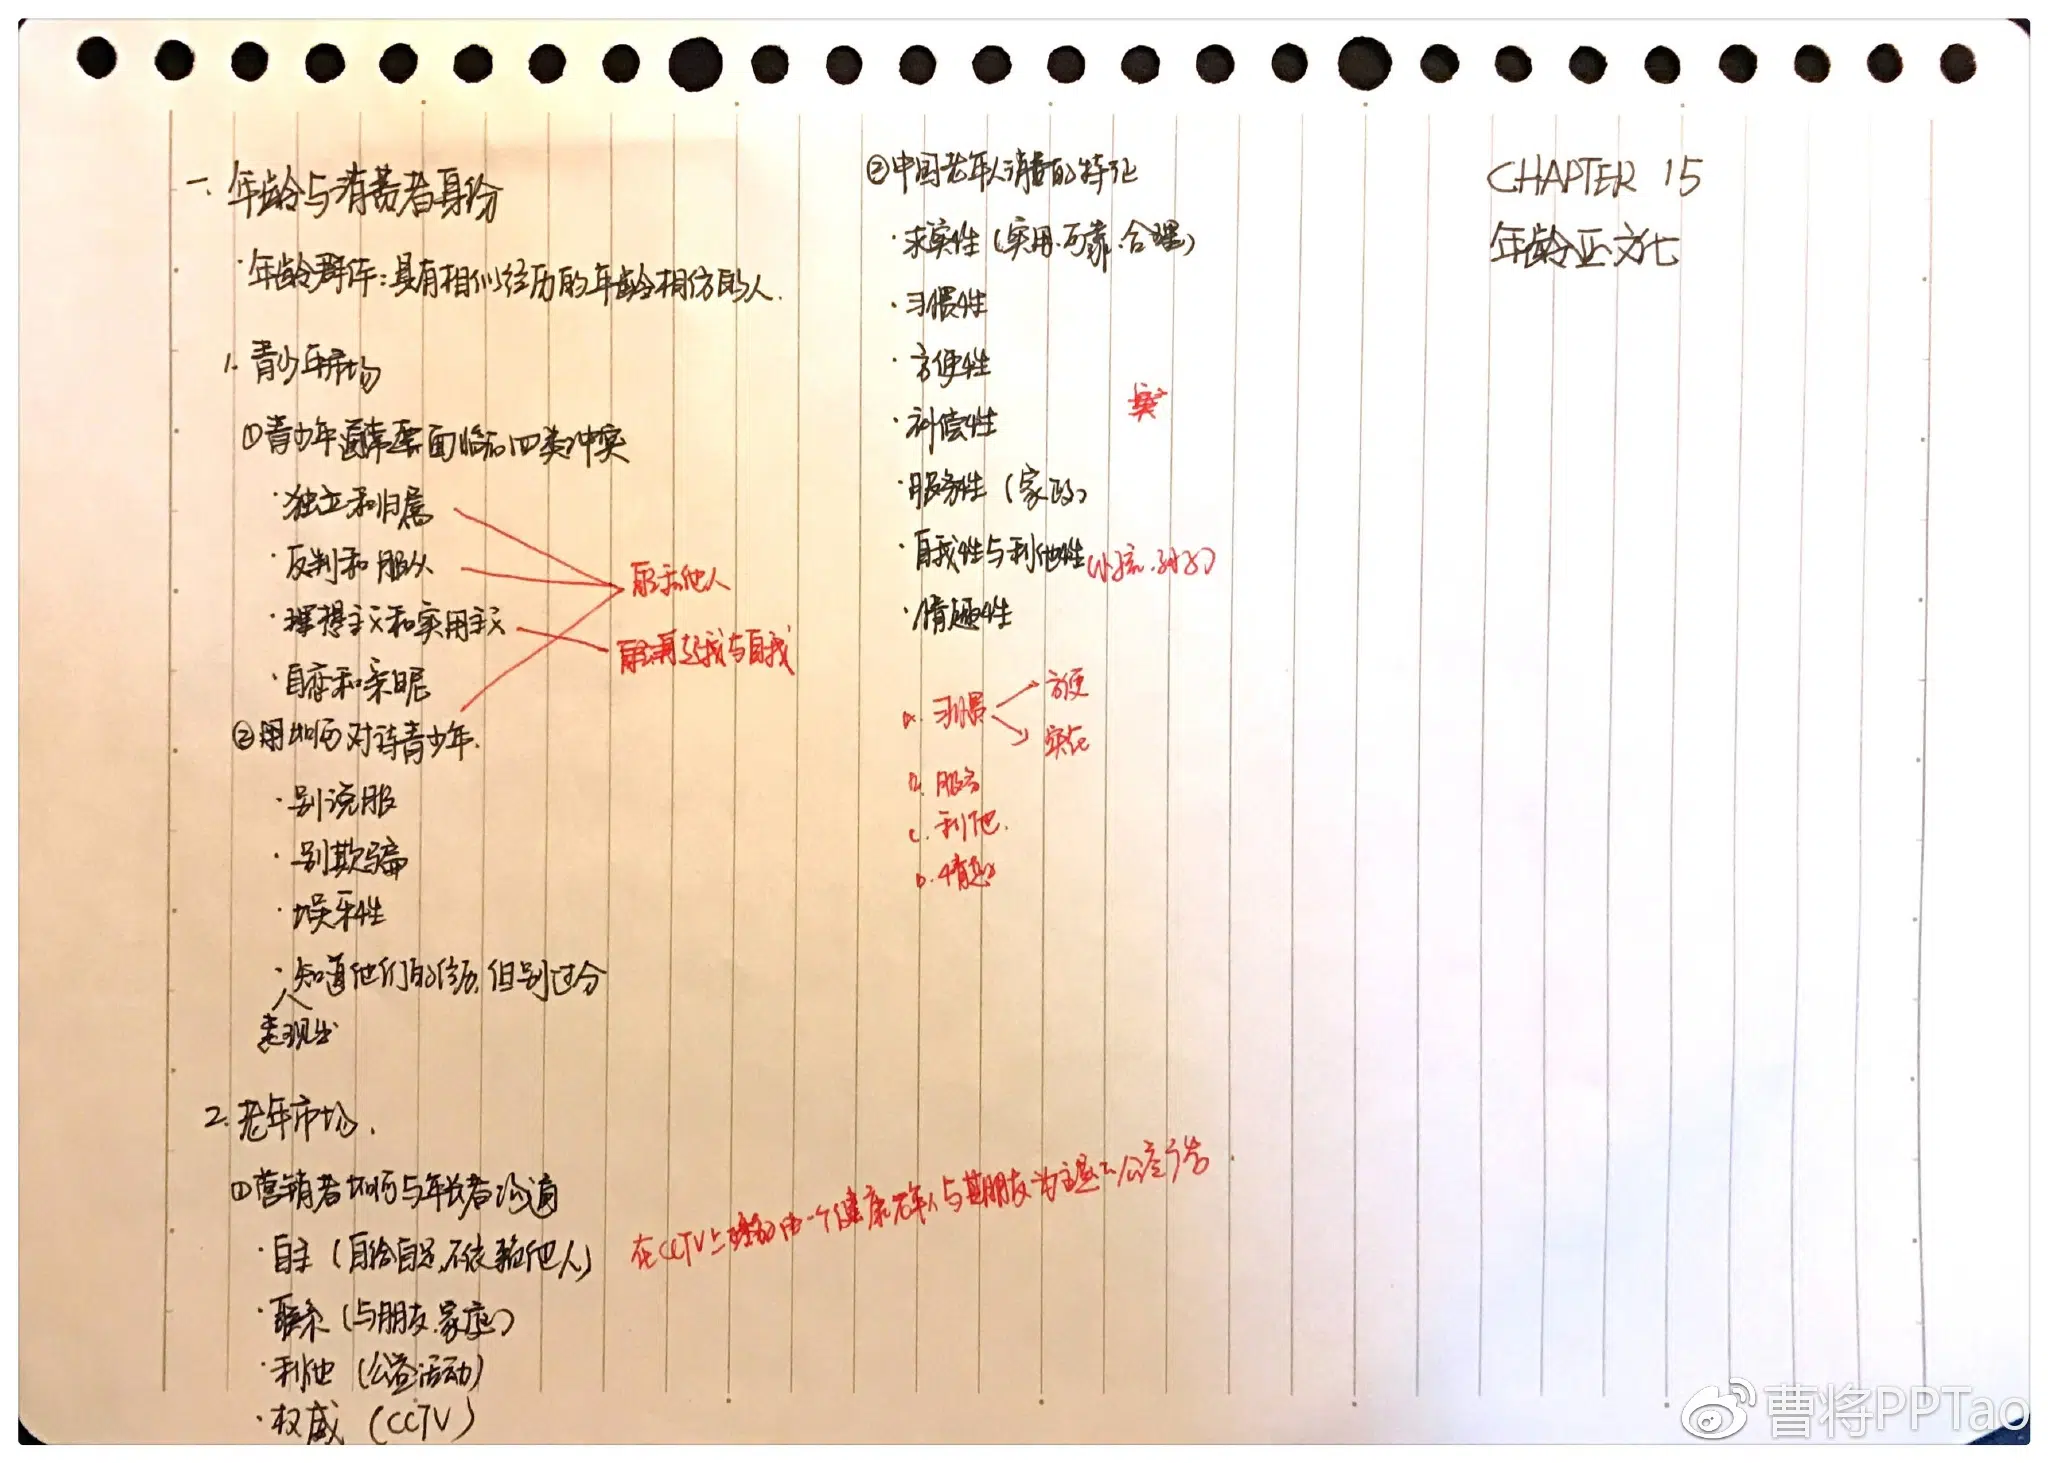 CHAPTER 15
年龄亚文化
一. 年龄与消费者身份
·年龄群体：具有相似经历的年龄相仿的人.
1. 青少年市场
①青少年通常要面临的四类冲突
·独立和归属
·反判和服从
·理想主义和实用主义
·自恋和亲昵
联系他人
超我与自我
②如何对话青少年.
·别说服
·别欺骗
·娱乐性
·知道他们的经历,但别过分
表现出
2. 老年市场.
①营销者如何与年长者沟通
·自主（自给自足,不依赖他人）
·联系（与朋友.家庭）
·利他（公益活动）
·权威（CCTV）
在CCTV上播放由一个健康老年人与其朋友为主题的公益广告
②中国老年人消费的特征
·求实性（实用.可靠.合理）
·习惯性
·方便性
·补偿性
实
·服务性（家政）
·自我性与利他性（小孩.孙子）
·情趣性
a. 习惯
方便
实在
b. 服务
c. 利他.
D. 情趣
曹将PPTao